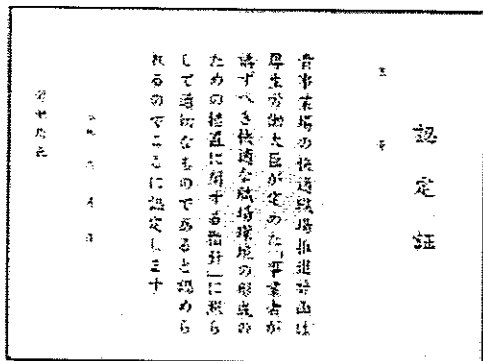 認定証
貴事業場の快適職場推進計画は
厚生労働大臣が定めた「事業者が
講ずべき快適な職場環境の形成の
ための措置に関する指針」に照ら
して適切なものであると認めら
れるのでここに認定します